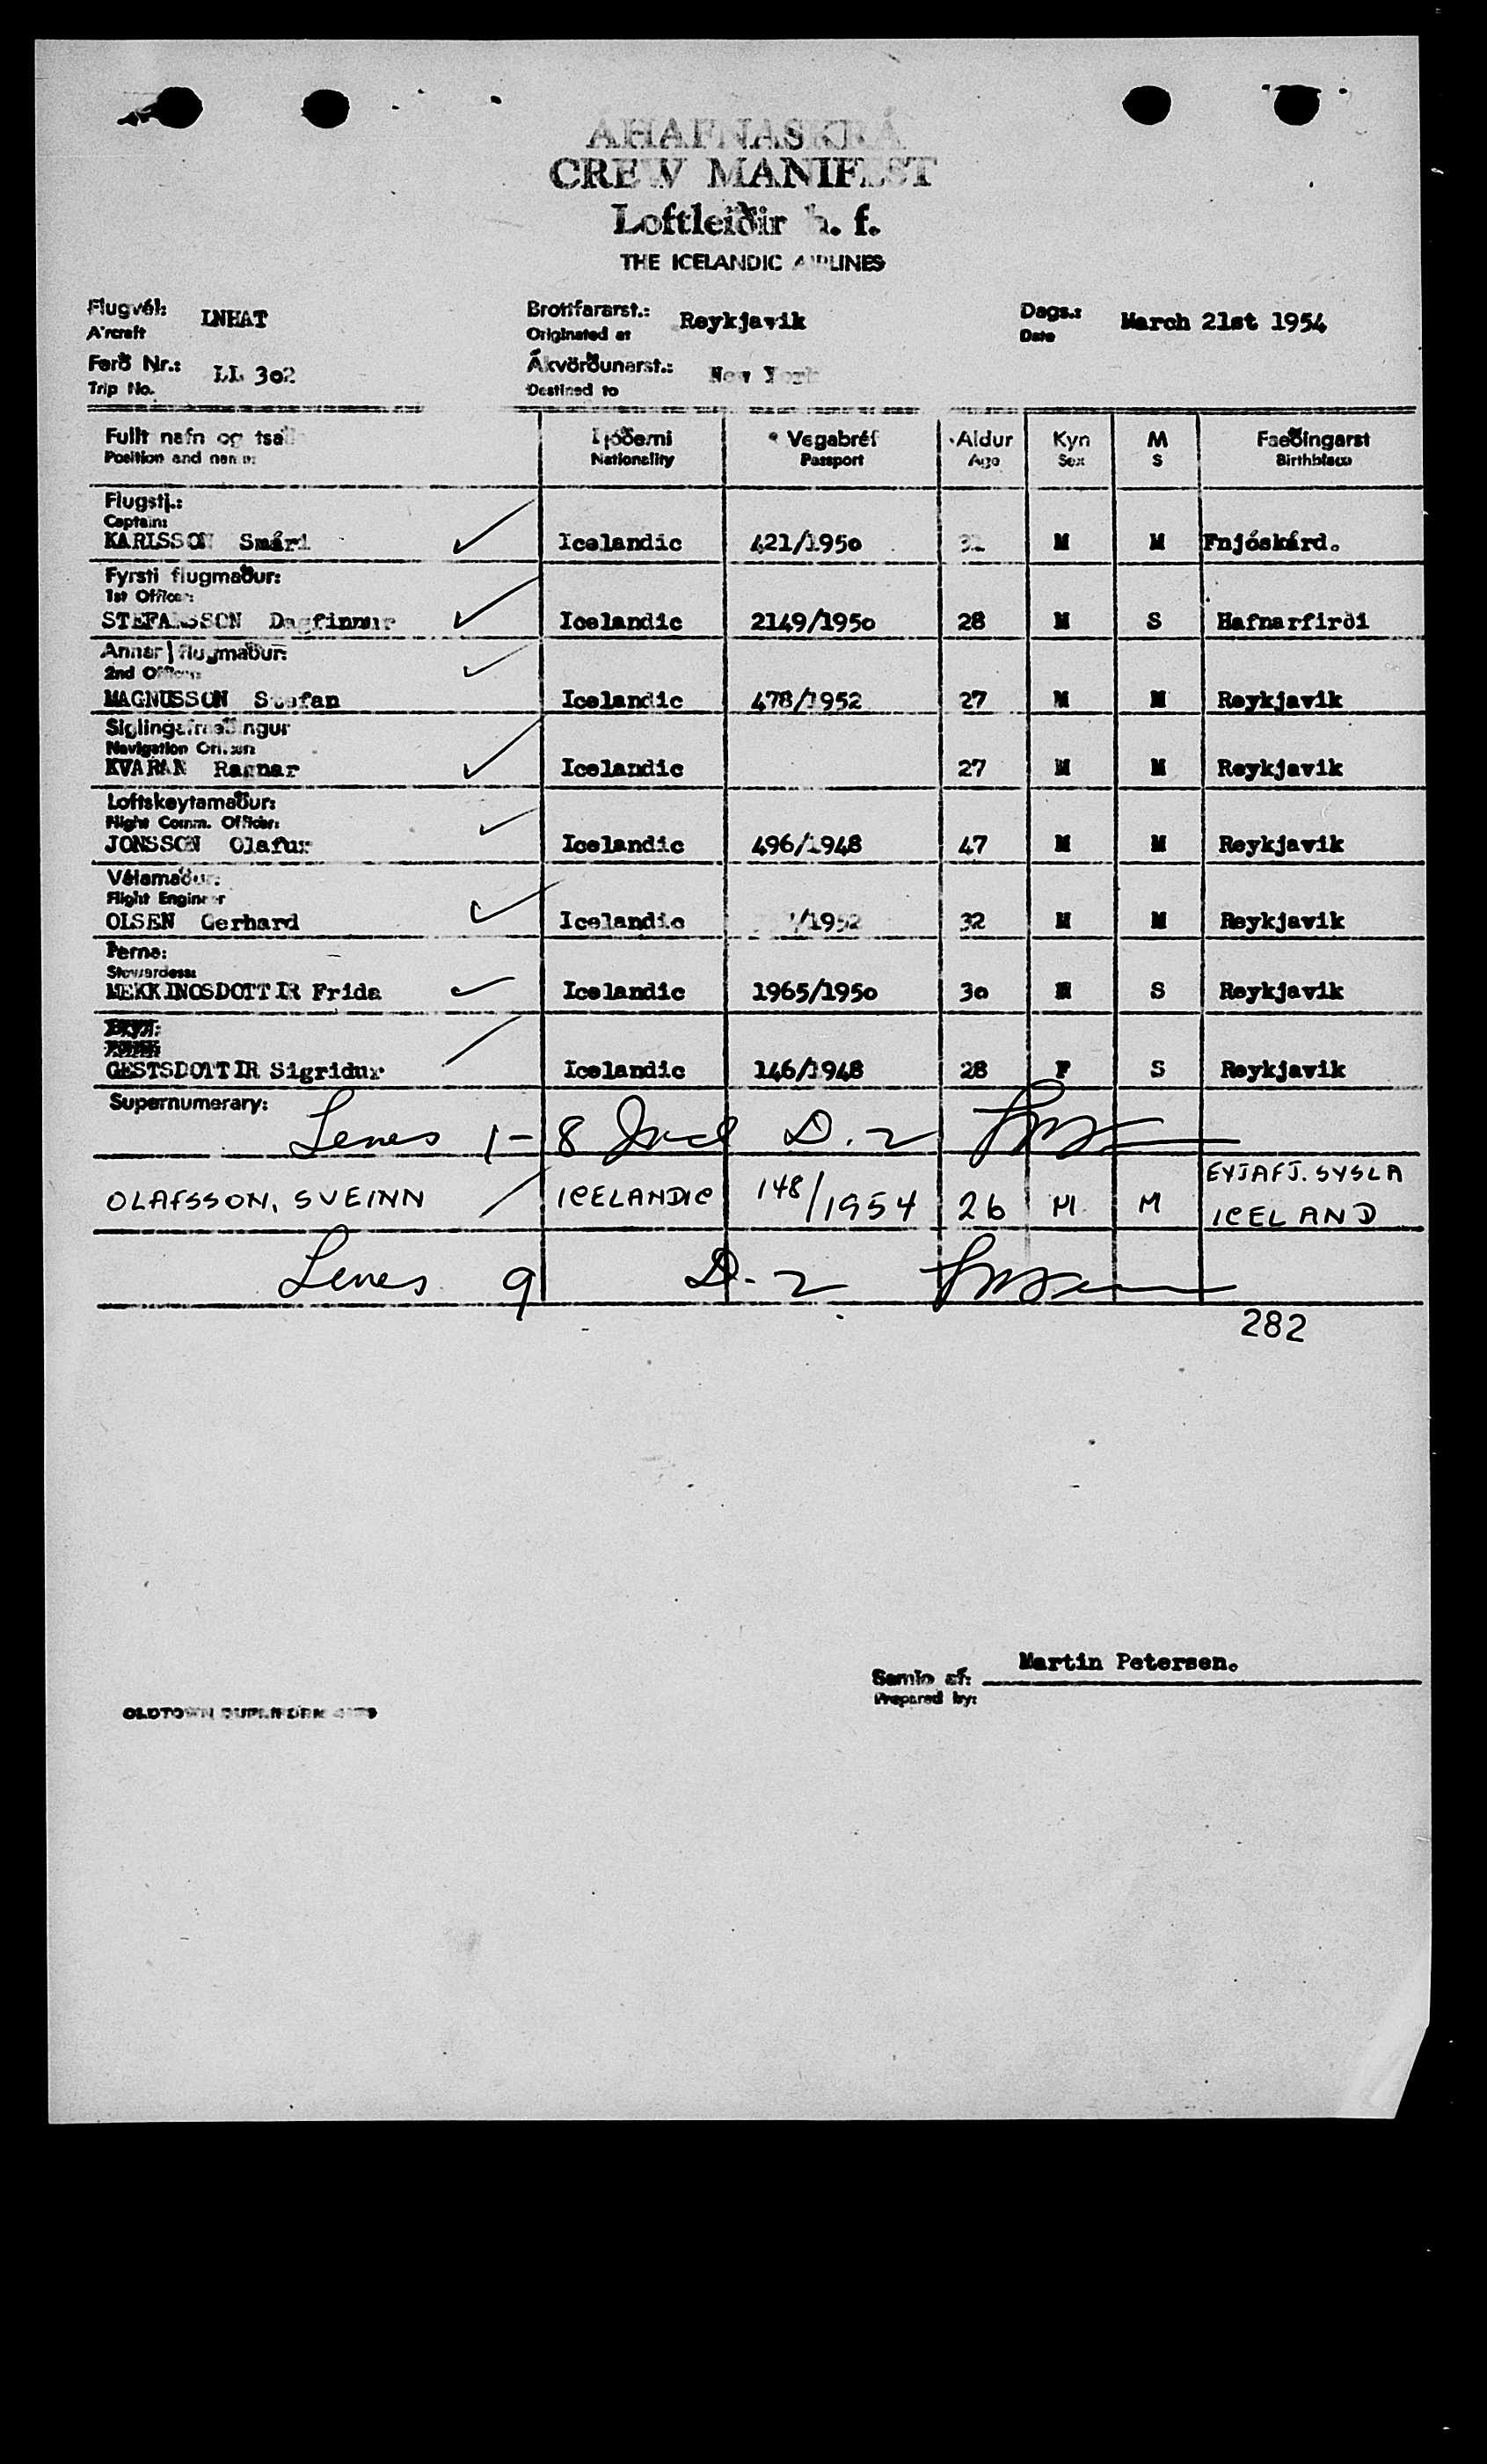 ÁHAFNASKRÁ
CREW MANIFEST
Loftleiðir h. f.
THE ICELANDIC AIRLINES
Flugvél: LNHAT Brottfararst.: Reykjavik Dags.: March 21st 1954
Aircraft Originated at Date
Ferð Nr.: LL 302 Ákvörðunarst.: New York
Trip No. Destined to
Fullt nafn og Þjóðerni Vegabréf Aldur Kyn M Faeðingarst
Position and name: Nationality Passport Age Sex S Birthblace
Flugstj.:
Captain:
KARLSSON Smári Icelandic 421/1950 M M Fnjóskárd.
Fyrsti flugmaður:
1st Officer:
STEFANSSON Dagfinnur Icelandic 2149/1950 28 M S Hafnarfirði
Annar flugmaður:
2nd Officer:
MAGNUSSON Stefan Icelandic 478/1952 27 M M Reykjavik
Siglingafraeðingur
Navigation Officer:
KVARAN Ragnar Icelandic 27 M M Reykjavik
Loftskeytamaður:
Flight Comm. Officer:
JONSSON Olafur Icelandic 496/1948 47 M M Reykjavik
Vélamaður:
Flight Engineer
OLSEN Gerhard Icelandic /1952 32 M M Reykjavik
Þerna:
Stewardess:
MEKKINOSDOTTIR Frida Icelandic 1965/1950 30 M S Reykjavik
GESTSDOTTIR Sigridur Icelandic 146/1948 28 F S Reykjavik
Supernumerary:
Lenes 1-8 Incl D. 2
OLAFSSON, SVEINN ICELANDIC 148/1954 26 M M EYJAFJ. SYSLA
ICELAND
Lenes 9 D-2
282
Martin Petersen.
Samið af:
Prepared by:
OLDTOWN